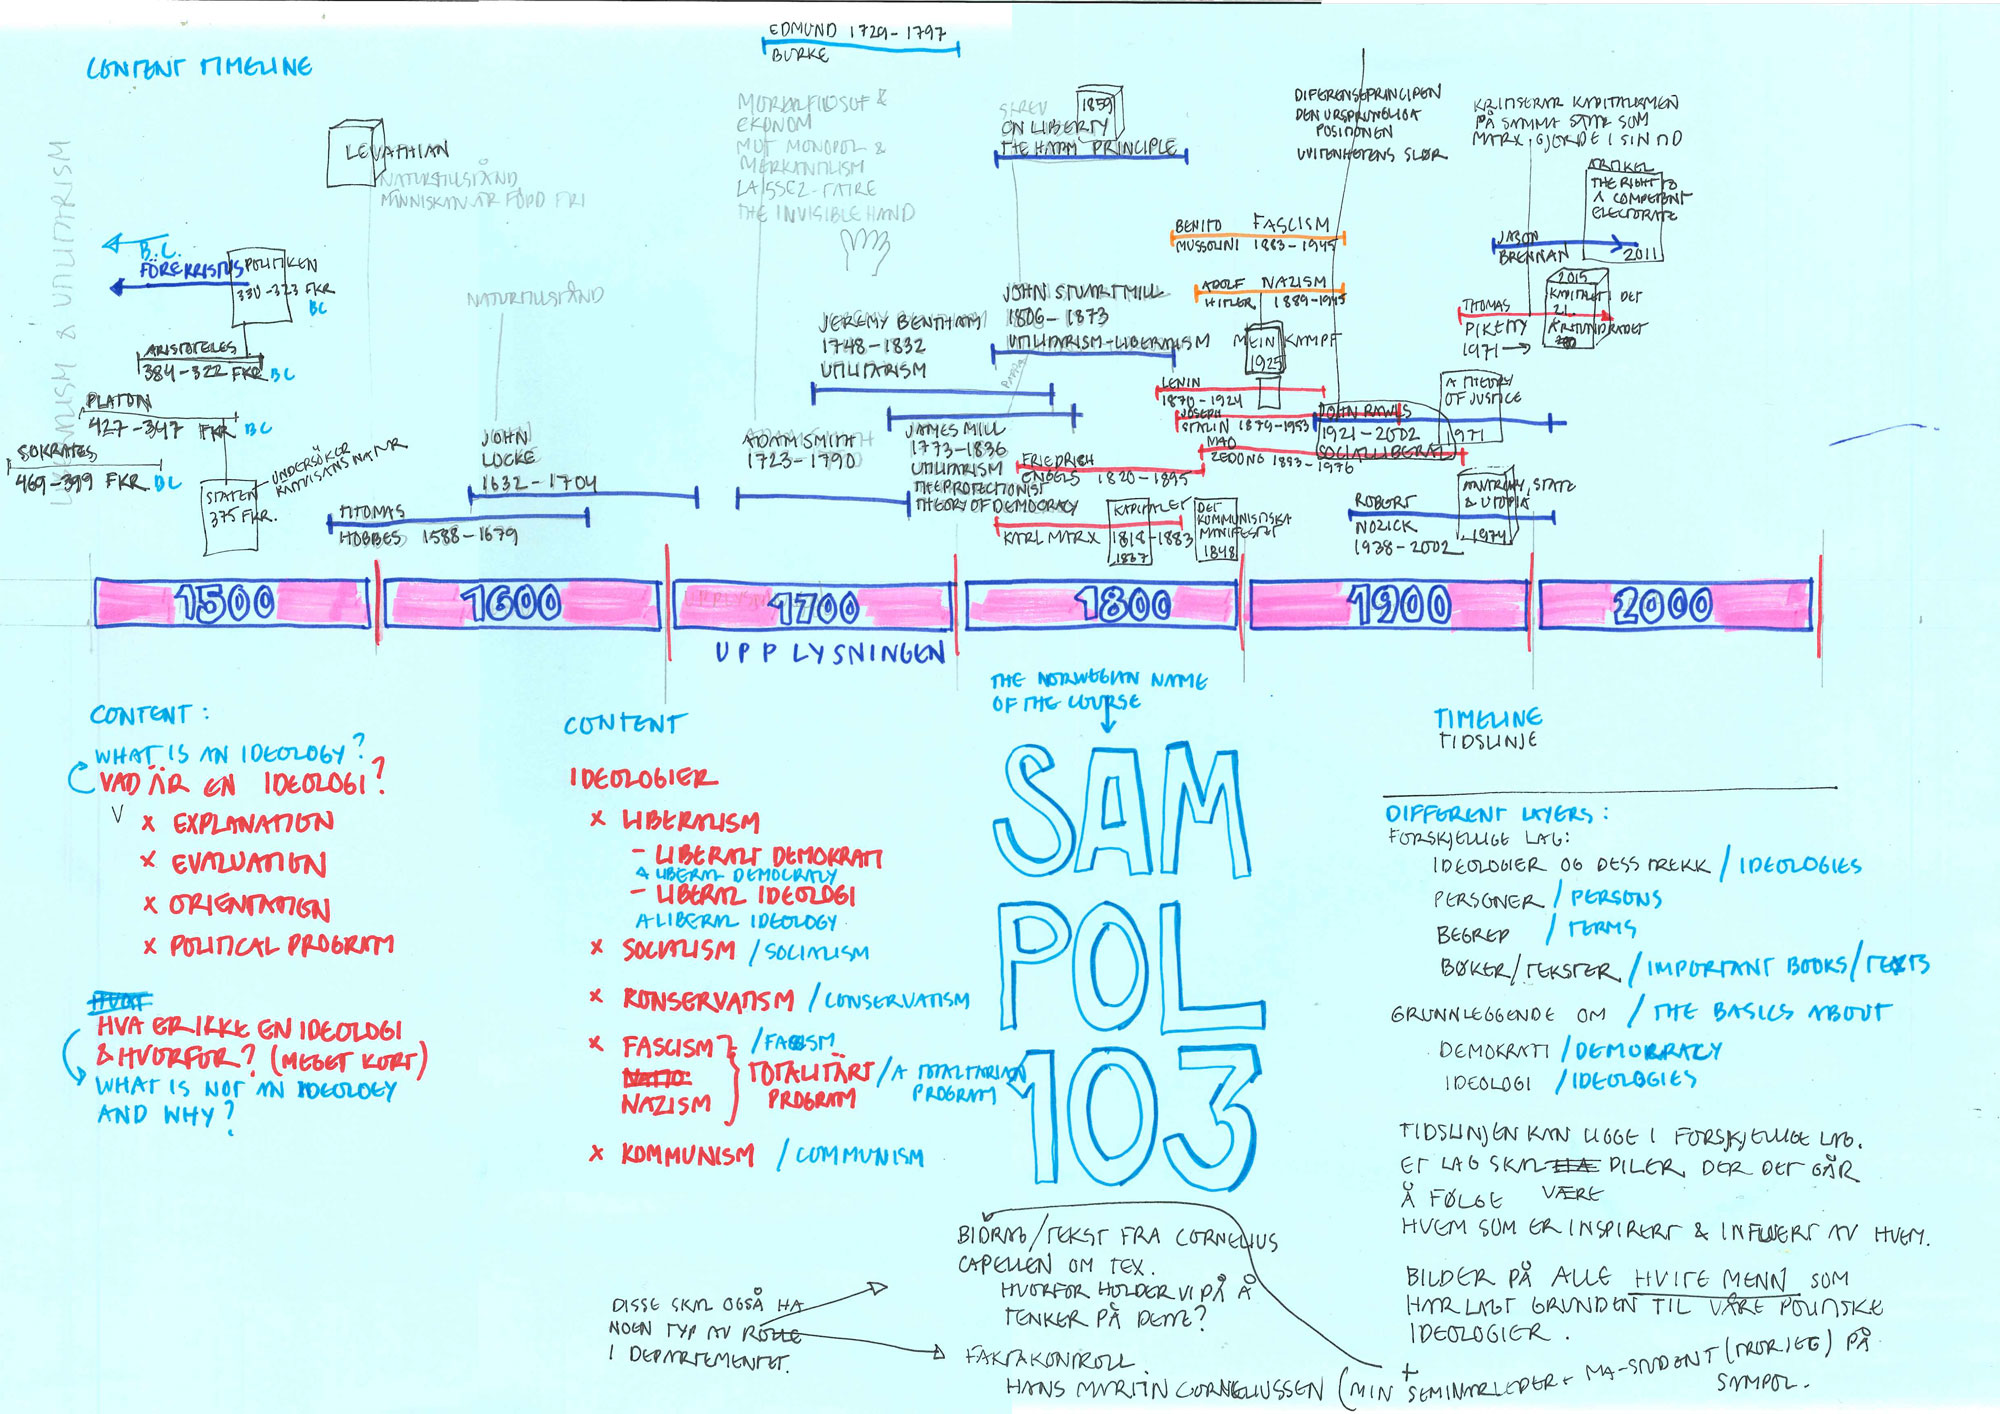 CONTENT TIMELINE
EDMUND 1729-1797
BURKE
LIBERALISM & UTILITARISM
LEVATHIAN
NATURTILLSTÅND
MÄNNISKAN ÄR FÖDD FRI
MORALFILOSOF &
EKONOM
MOT MONOPOL &
MERKANTILISM
LAISSEZ-FAIRE
THE INVISIBLE HAND
SKREV
1859
ON LIBERTY
THE HARM PRINCIPLE
DIFERENSEPRINCIPEN
DEN URSPRUNGLIGA
POSITIONEN
UVITENHETENS SLØR
KRITISERAR KAPITALISMEN
PÅ SAMMA SÄTT SOM
MARX GJORDE I SIN TID
ARTIKEL
THE RIGHT TO
A COMPETENT
ELECTORATE
2011
JASON
BRENNAN
B.C.
FÖRE KRISTUS
POLITIKEN
330-323 FKR
BC
ARISTOTELES
384-322 FKR BC
PLATON
427-347 FKR BC
SOKRATES
469-399 FKR BC
STATEN
375 FKR.
UNDERSÖKER
RÄTTVISANS NATUR
THOMAS
HOBBES 1588-1679
NATURTILLSTÅND
JOHN
LOCKE
1632-1704
ADAM SMITH
1723-1790
JEREMY BENTHAM
1748-1832
UTILITARISM
JAMES MILL
1773-1836
UTILITARISM
THE PROTECTIONIST
THEORY OF DEMOCRACY
JOHN STUART MILL
1806-1873
UTILITARISM-LIBERALISM
PAPPA
FRIEDRICH
ENGELS 1820-1895
KARL MARX 1818-1883
KAPITALET
1867
DET
KOMMUNISTISKA
MANIFESTET
1848
BENITO FASCISM
MUSSOLINI 1883-1945
ADOLF NAZISM
HITLER 1889-1945
MEIN KAMPF
1925
LENIN
1870-1924
JOSEPH
STALIN 1879-1953
MAO
ZEDONG 1893-1976
JOHN RAWLS
1921-2002
SOCIALLIBERAL
A THEORY
OF JUSTICE
1971
ROBERT
NOZICK
1938-2002
ANARCHY, STATE
& UTOPIA
1974
THOMAS
PIKETTY
1971→
2015
KAPITALET DET
21.
ÅRHUNDRADET
1500
1600
1700
1800
1900
2000
UPPLYSNINGEN
CONTENT:
WHAT IS AN IDEOLOGY?
VAD ÄR EN IDEOLOGI?
V
x EXPLANATION
x EVALUATION
x ORIENTATION
x POLITICAL PROGRAM
HVAT
HVA ER IKKE EN IDEOLOGI
& HVORFOR? (MEGET KORT)
WHAT IS NOT AN IDEOLOGY
AND WHY?
CONTENT
IDEOLOGIER
x LIBERALISM
- LIBERALT DEMOKRATI
A LIBERAL DEMOCRACY
- LIBERAL IDEOLOGI
A LIBERAL IDEOLOGY
x SOCIALISM / SOCIALISM
x KONSERVATISM / CONSERVATISM
x FASCISM / FACSM
NAZISM
TOTALITÄRT
PROGRAM
/ A TOTALTARIAN
PROGRAM
x KOMMUNISM / COMMUNISM
THE NORWEGIAN NAME
OF THE COURSE
SAM
POL
103
TIMELINE
TIDSLINJE
DIFFERENT LAYERS:
FORSKJELLIGE LAG:
IDEOLOGIER OG DESS TREKK / IDEOLOGIES
PERSONER / PERSONS
BEGREP / TERMS
BØKER/TEKSTER / IMPORTANT BOOKS/TEXTS
GRUNNLEGGENDE OM / THE BASICS ABOUT
DEMOKRATI / DEMOCRACY
IDEOLOGI / IDEOLOGIES
TIDSLINJEN KAN LIGGE I FORSKJELLIGE LAG.
ET LAG SKAL HA PILER DER DET GÅR
Å FØLGE VÆRE
HVEM SOM ER INSPIRERT & INFLUERT AV HVEM.
BILDER PÅ ALLE HVITE MENN SOM
HAR LAGT GRUNDEN TIL VÅRE POLITISKE
IDEOLOGIER.
BIDRAG/TEKST FRA CORNELIUS
CAPELLEN OM TEX.
HVORFOR HOLDER VI PÅ Å
TENKER PÅ DETTE?
DISSE SKAL OGSÅ HA
NOEN TYP AV ROLLE
I DEPARTEMENTET.
FAKTAKONTROLL
HANS MARTIN CORNELIUSSEN (MIN SEMINARLEDER + MA-STUDENT (TROR JEG) PÅ
SAMPOL.
+